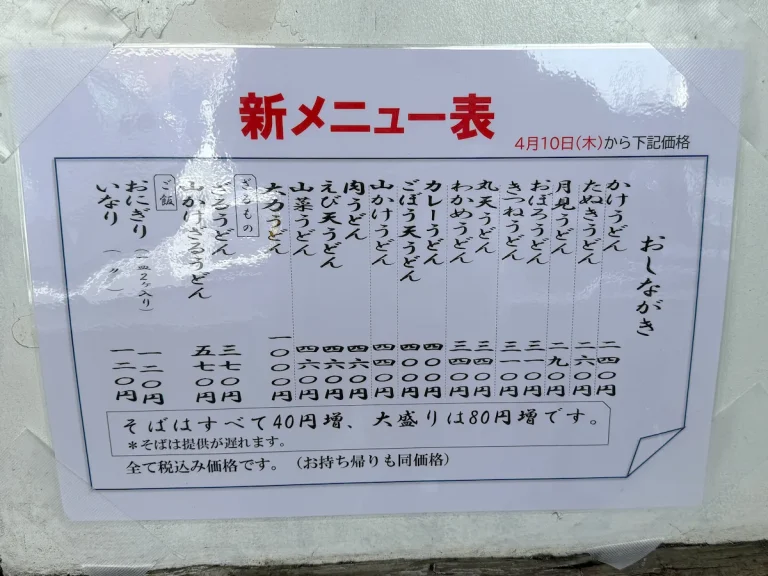 新メニュー表
4月10日(木)から下記価格
おしながき
かけうどん 二四〇円
たぬきうどん 二六〇円
月見うどん 二九〇円
おぼろうどん 三一〇円
きつねうどん 三一〇円
丸天うどん 三四〇円
わかめうどん 三四〇円
カレーうどん 四〇〇円
ごぼう天うどん 四〇〇円
山かけうどん 四四〇円
肉うどん 四六〇円
えび天うどん 四六〇円
山菜うどん 四六〇円
大力うどん 一〇〇〇円
ざるもの
ざるうどん 三七〇円
山かけざるうどん 五七〇円
ご飯
おにぎり(一皿2ヶ入り) 一二〇円
いなり( 〃 ) 一二〇円
そばはすべて40円増、大盛りは80円増です。
*そばは提供が遅れます。
全て税込み価格です。(お持ち帰りも同価格)